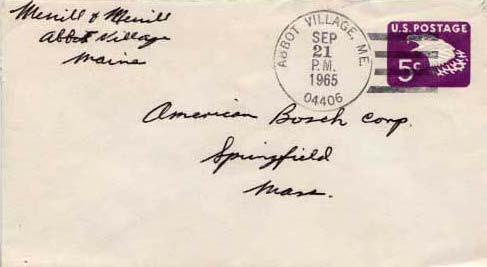 Merrill & Merrill
Abbot Village
Maine
ABBOT VILLAGE, ME.
SEP
21
P.M.
1965
04406
U.S. POSTAGE
5¢
American Bosch Corp.
Springfield
Mass.